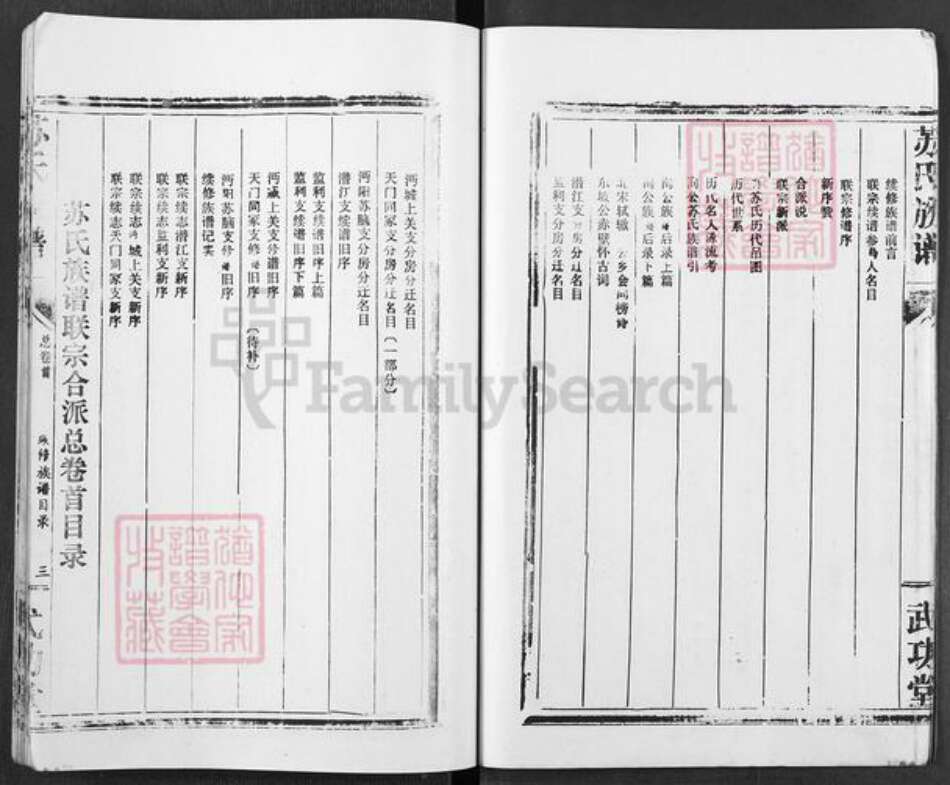 苏氏族谱
武功堂
续修族谱前言
联宗续谱参与人名目
联宗修谱序
新序赞
合派说
联宗新派
苏氏历代吊图
历代世系
历氏名人源流考
洵公苏氏族谱引
洵公族谱后录上篇
洵公族谱后录下篇
北宋轼辙
乡会同榜诗
东坡公赤壁怀古词
潜江支分房分迁名目
监利支分房分迁名目
沔城上关支分房分迁名目
天门同冢支分房分迁名目(一部分)
沔阳苏脑支分房分迁名目
潜江支续谱旧序
监利支续谱旧序上篇
监利支续谱旧序下篇
沔城上关支修谱旧序
天门同冢支修谱旧序(待补)
沔阳苏脑支修谱旧序
续修族谱记实
联宗续志潜江支新序
联宗续志监利支新序
联宗续志沔城上关支新序
联宗续志天门同冢支新序
苏氏族谱联宗合派总卷首目录
总卷首
族修族谱目录
三
FamilySearch